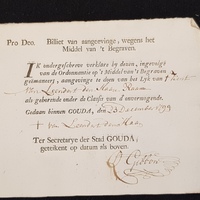 Pro Deo. Billet van aangeevinge, wegens het
Middel van 't Begraven.
IK ondergeschreve verklare by dezen, ingevolgt van
de Ordonnantie op 't Middel van 't Begraven
geëmaneert, aangevinge te doen van het Lyk van
Leendert den Haan
als gehorende onder de Classis van d'onvermogende.
Gedaan binnen GOUDA, den 23 December 1799
Leendert den Haan
Ter Secretarye der Stad GOUDA;
getekent op datum als boven.